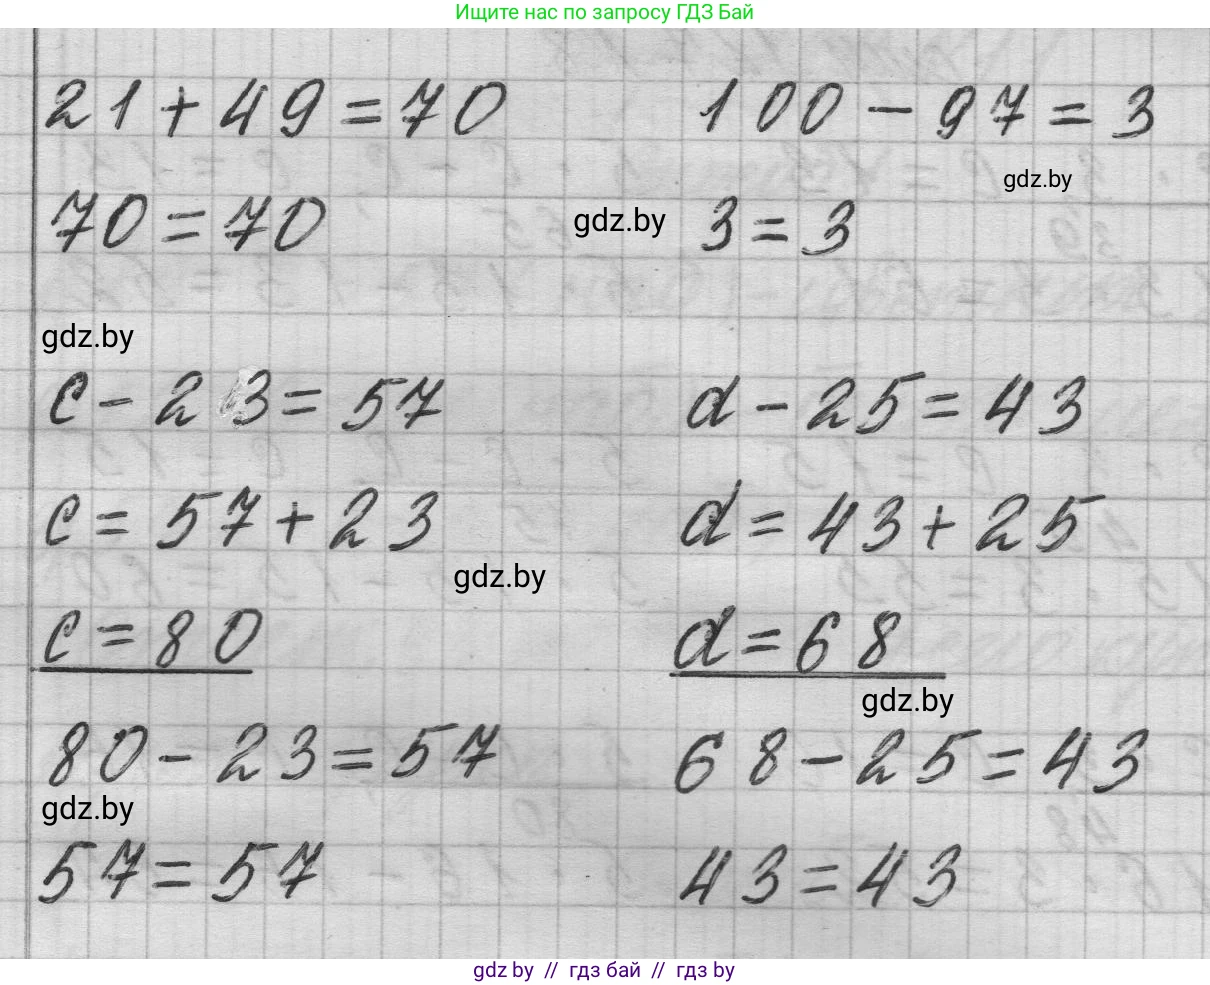 Ищите нас по запросу ГДЗ Бай
21+49=70
100-97=3
gdz.by
70=70
gdz.by
3=3
gdz.by
c-23=57
d-25=43
c=57+23
d=43+25
gdz.by
c=80
d=68
gdz.by
80-23=57
68-25=43
gdz.by
57=57
43=43
gdz by // гдз бай // гдз by